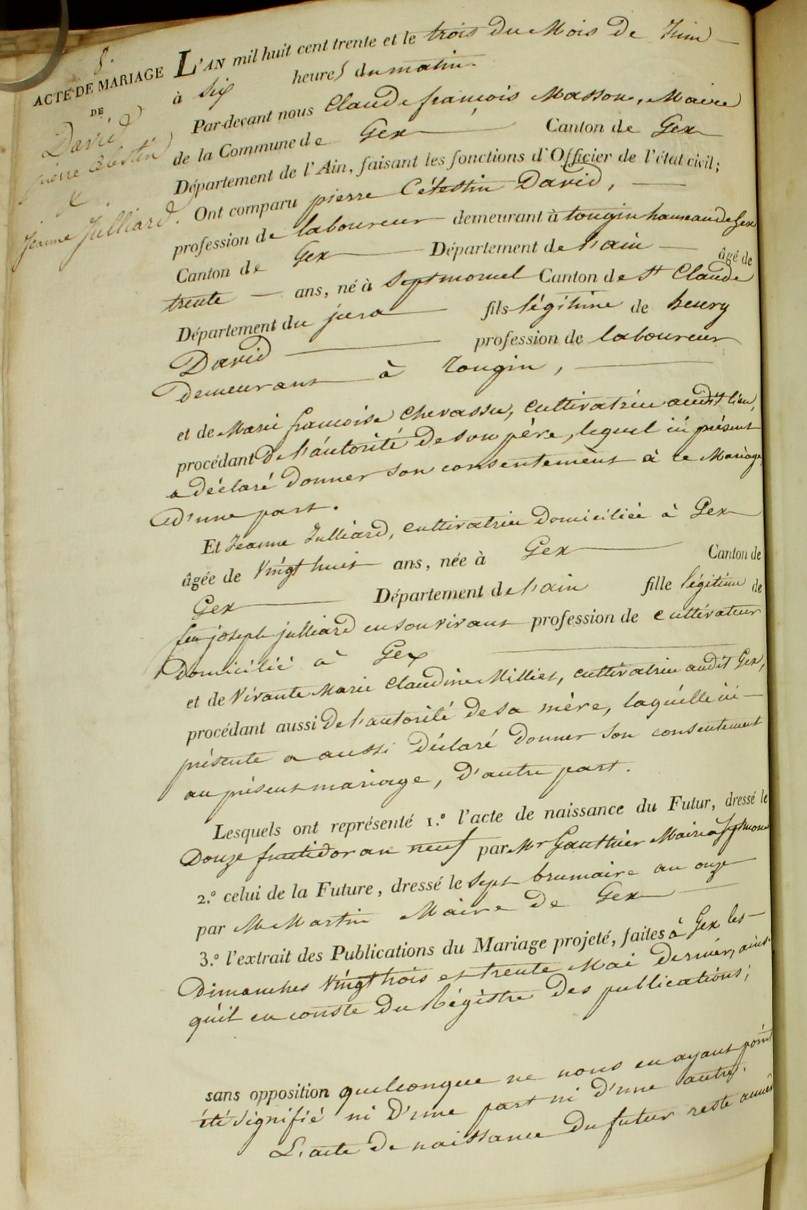 8.
ACTE DE MARIAGE
DE
David
pierre Célestin
&
Jeanne Julliard.
L'AN mil huit cent trente et le trois du Mois de Juin
à six heures du matin.
Par-devant nous Claude françois Masson, Maire
de la Commune de Gex Canton de Gex
Département de l'Ain, faisant les fonctions d'Officier de l'état civil;
Ont comparu pierre Célestin David,
profession de laboureur demeurant à tougin hameau de Gex
Canton de Gex Département de l'ain âgé de
trente ans, né à Septmoncel Canton de St Claude
Département du jura fils légitime de henry
David profession de laboureur
demeurant à Tougin,
et de Marie françoise Chevassu, cultivatrice audit lieu,
procédant de l'autorité de son père, lequel ici présent
a déclaré donner son consentement à ce Mariage
d'une part.
Et Jeanne Julliard, cultivatrice domiciliée à Gex
âgée de vingt huit ans, née à Gex Canton de
Gex Département de l'ain fille légitime de
feu joseph julliard en son vivant profession de cultivateur
domicilié à Gex
et de vivante Marie Claudine Milliet, cultivatrice audit Gex,
procédant aussi de l'autorité de sa mère, laquelle ici
présente a aussi déclaré donner son consentement
au présent mariage, d'autre part.
Lesquels ont représenté 1.º l'acte de naissance du Futur, dressé le
Douze fructidor an neuf par Mr Gauthier Maire à Septmoncel
2.º celui de la Future, dressé le Sept brumaire an onze
par M Martin Maire de Gex
3.º l'extrait des Publications du Mariage projeté, faites à Gex les
Dimanches vingt trois et trente Mai dernier, ainsi
qu'il en conste du Régistre des publications;
sans opposition quelconque ne nous en ayant point
été signifié ni d'une part ni d'une autre.
L'acte de naissance du futur reste annexé